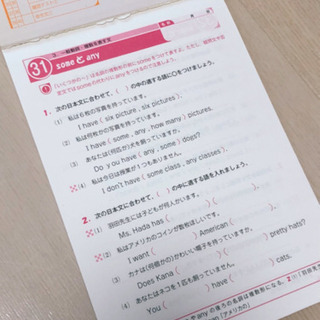 31 someとany
1. 次の日本文に合わせて、( )の中の適する語に○をつけましょう。
(1) 私は6枚の写真を持っています。
I have ( six picture, six pictures ).
(2) 私は何枚かの写真を持っています。
I have ( some , any , how many ) pictures.
(3) あなたは(何匹か)犬を飼っていますか。
Do you have ( any , some ) dogs?
(4) 私は今日は授業が1つもありません。
I don't have ( some class , any classes ).
2. 次の日本文に合わせて、( )の中に適する語を入れましょう。
(1) 羽田先生には子どもが何人かいます。
Ms. Hada has ( ) ( ).
(2) 私はアメリカのコインが数枚ほしいです。
I want ( ) American ( ).
(3) カナは(何個かの)かわいい帽子を持っていますか。
Does Kana ( ) ( ) pretty hats?
(4) あなたはネコを1匹も飼っていません。
You ( ) have ( ) cats.